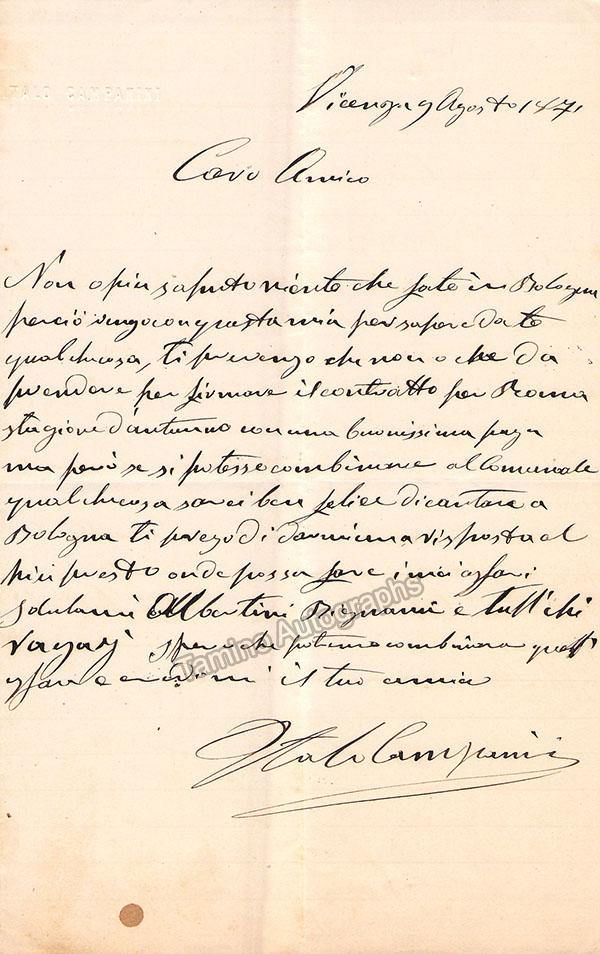 ITALO CAMPANINI
Vicenza 9 Agosto 1871
Caro Amico
Non o piu saputo niente che fate in Bologna
perciò vengo con questa mia per sapere da te
qualchecosa, ti prevengo che non o che da
prendere per firmare il contratto per Roma
stagione d'autunno con una buonissima paga
ma però se si potesse combinare al Comunale
qualchecosa sarei ben felice di cantare a
Bologna ti prego di darmi una risposta al
piu presto onde possa fare i miei affari
Salutami Albertini Bignami e tutti chi
ragazj spero che potremo combinare questi
affare e credimi il tuo amico
Italo Campanini
Tamino Autographs